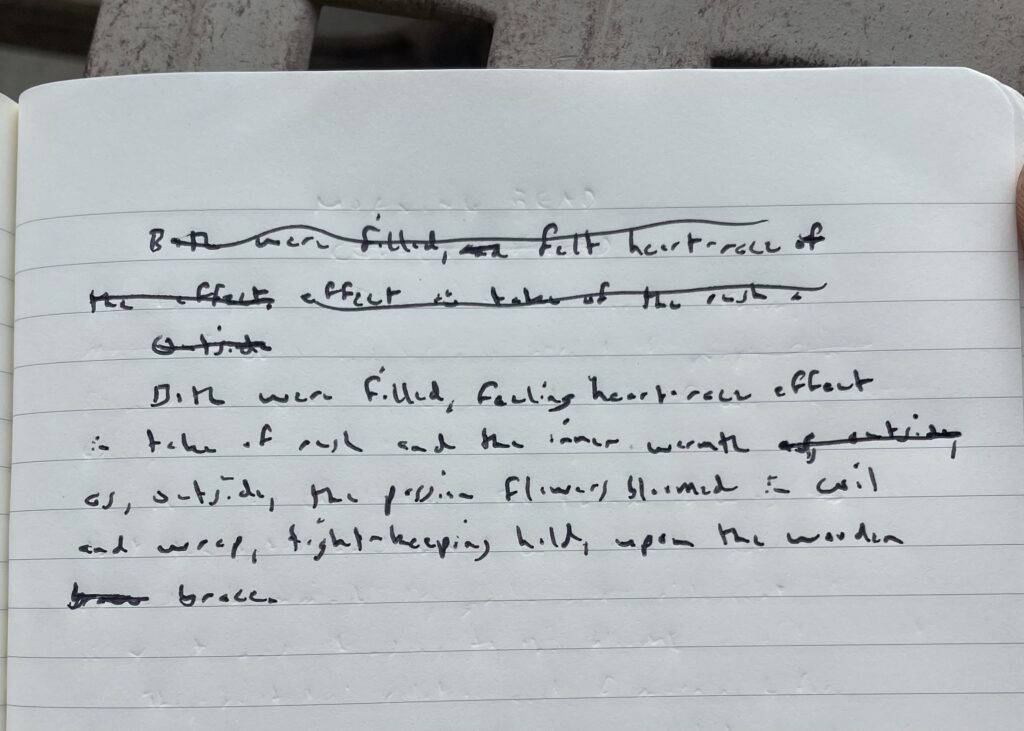 Both were filled, and felt heart-race of
the effect, effect in take of the rush a
Outside
Both were filled, feeling heart-race effect
in take of rush and the inner warmth as, outside,
as, outside, the passion flowers bloomed in coil
and wrap, tight-keeping hold, upon the wooden
brace brace.